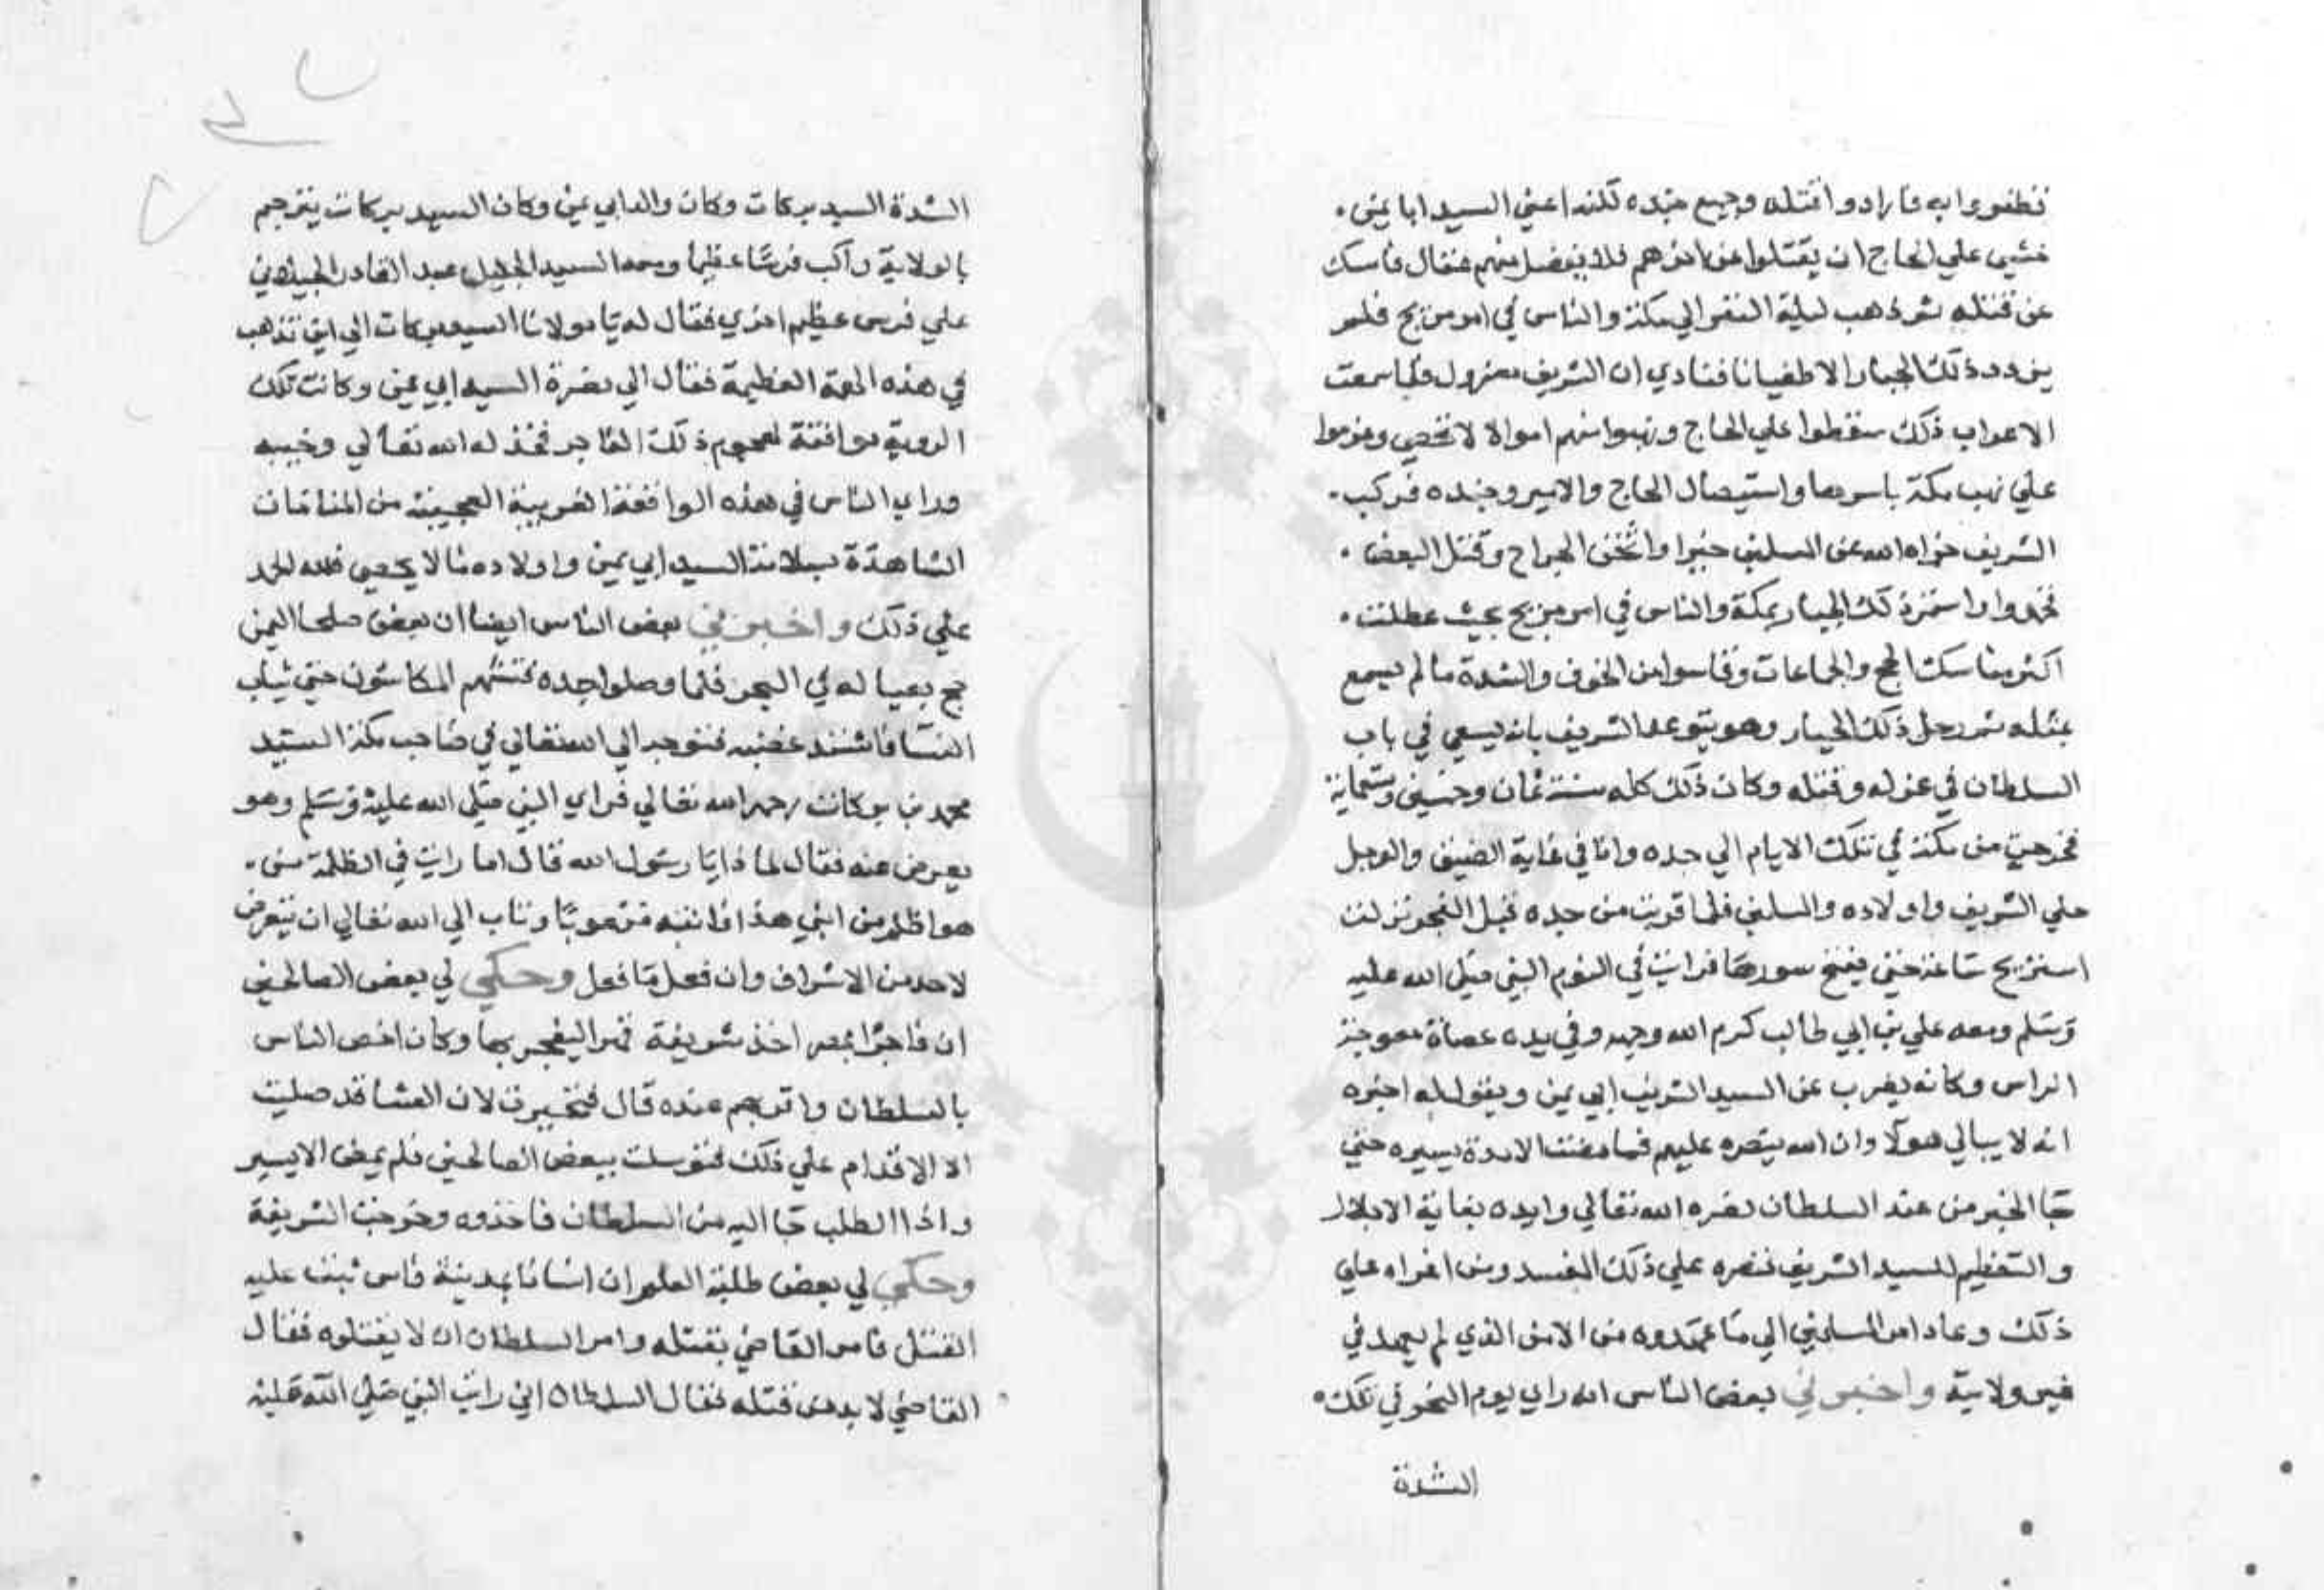 فظفروا به فارادوا قتله وجميع جنده لكنه اعني السيد ابا نمي
خشي علي الحاج ان يقتلوا عن اخرهم فلا يفضل منهم عقال فامسك
عن قتله ثم ذهب ليلة النفر الي مكة والناس في امر مريج فلم
يزدد ذلك الجبار الا طغيانا فنادي ان الشريف معزول فلما سمعت
الاعراب ذلك سقطوا علي الحاج ونهبوا منهم اموالا لا تحصي وعزموا
علي نهب مكة باسرها واستيصال الحاج والامير وجنده فركب
الشريف جزاه الله عن المسلمين خيرا واثخن الجراح وقتل البعض
فخمدوا واستمر ذلك الجبار بمكة والناس في امر مريج بحيث عطلت
اكثر مناسك الحج والجماعات وقاسوا من الخوف والشدة ما لم يسمع
بمثله ثم رحل ذلك الجبار وهو يتوعد الشريف بانه يسعي في باب
السلطان في عزله وقتله وكان ذلك كله سنة ثمان وخمسين وتسماية
فخرجت من مكة في تلك الايام الي جده وانا في غاية الضيق والوجل
علي الشريف واولاده والمسلمين فلما قربت من جده قبل الفجر نزلت
استريح ساعة حتي يفتح سورها فرايت في النوم النبي صلي الله عليه
وسلم ومعه علي بن ابي طالب كرم الله وجهه وفي يده عصاة معوجة
الراس وكانه يضرب عن السيد الشريف ابي نمي ويقول له اخبره
انه لا يبالي هولا وان الله ينصره عليهم فما مضت الا مدة يسيره حتي
جا الخبر من عند السلطان نصره الله تعالي وايده بغاية الاجلال
والتعظيم للسيد الشريف فنصره علي ذلك المفسد ومن اغراه علي
ذلك وعاد امر المسلمين الي ما عهدوه من الامن الذي لم يعهد في
غير ولايته واخبرني بعض الناس انه راي يوم النحر في تلك
الشدة
الشدة السيد بركات وكان والد ابي نمي وكان السيد بركات يترجم
بالولاية راكب فرسا عظيما ومعه السيد الجليل عبد القادر الجيلاني
علي فرس عظيم اخري فقال له يا مولانا السيد بركات الي اين تذهب
في هذه الهمة العظيمة فقال الي نصرة السيد ابي نمي وكانت تلك
الروية موافقة لهجوم ذلك الفاجر فخذله الله تعالي وخيبه
وراي الناس في هذه الواقعة الغريبة العجيبة من المنامات
الشاهدة بسلامة السيد ابي نمي واولاده ما لا يحصي فلله الحمد
علي ذلك واخبرني بعض الناس ايضا ان بعض صلحا اليمن
حج بعياله في البحر فلما وصلوا جده فتشهم المكاسون حتي ثياب
النسا فاشتد غضبه فتوجه الي الله تعالي في صاحب مكة السيد
محمد بن بركات رحمه الله تعالي فراي النبي صلي الله عليه وسلم وهو
يعرض عنه فقال لماذا يا رسول الله قال اما رايت في الظلمة من
هو اظلم من ابني هذا فانتبه مرعوبا وتاب الي الله تعالي ان يتعرض
لاحد من الاشراف وان فعل ما فعل وحكي لي بعض الصالحين
ان فاجرا بمصر اخذ شريفة قهرا ليفجر بها وكان اخص الناس
بالسلطان واقربهم عنده قال فتحيرت لان العشا قد صليت
الا الاقدام علي ذلك فتوسلت ببعض الصالحين فلم يمض الا يسير
واذا الطلب جا اليه من السلطان فاخذوه وخرجت الشريفة
وحكي لي بعض طلبة العلم ان انسانا بمدينة فاس ثبت عليه
القتل فامر القاضي بقتله وامر السلطان ان لا يقتلوه فقال
القاضي لا بد من قتله فقال السلطان اني رايت النبي صلي الله عليه